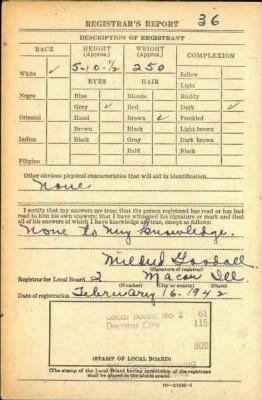 REGISTRAR'S REPORT 36
DESCRIPTION OF REGISTRANT
RACE HEIGHT (Approx.) WEIGHT (Approx.) COMPLEXION
White ✓ 5-10-½ 250 Sallow
EYES HAIR Light
Negro Blue Blonde Ruddy
Gray ✓ Red Dark ✓
Oriental Hazel Brown ✓ Freckled
Brown Black Light brown
Indian Black Gray Dark brown
Bald Black
Filipino
Other obvious physical characteristics that will aid in identification
None
I certify that my answers are true; that the person registered has read or has had
read to him his own answers; that I have witnessed his signature or mark and that
all of his answers of which I have knowledge are true, except as follows:
None to my knowledge.
Mildred Goodall
(Signature of registrar)
Registrar for Local Board 2 Macon Ill.
(Number) (City or county) (State)
Date of registration February 16-1942
Local Board No 2 61
Decatur City 115
802
(STAMP OF LOCAL BOARD)
(The stamp of the Local Board having jurisdiction of the registrant
shall be placed in the above space)